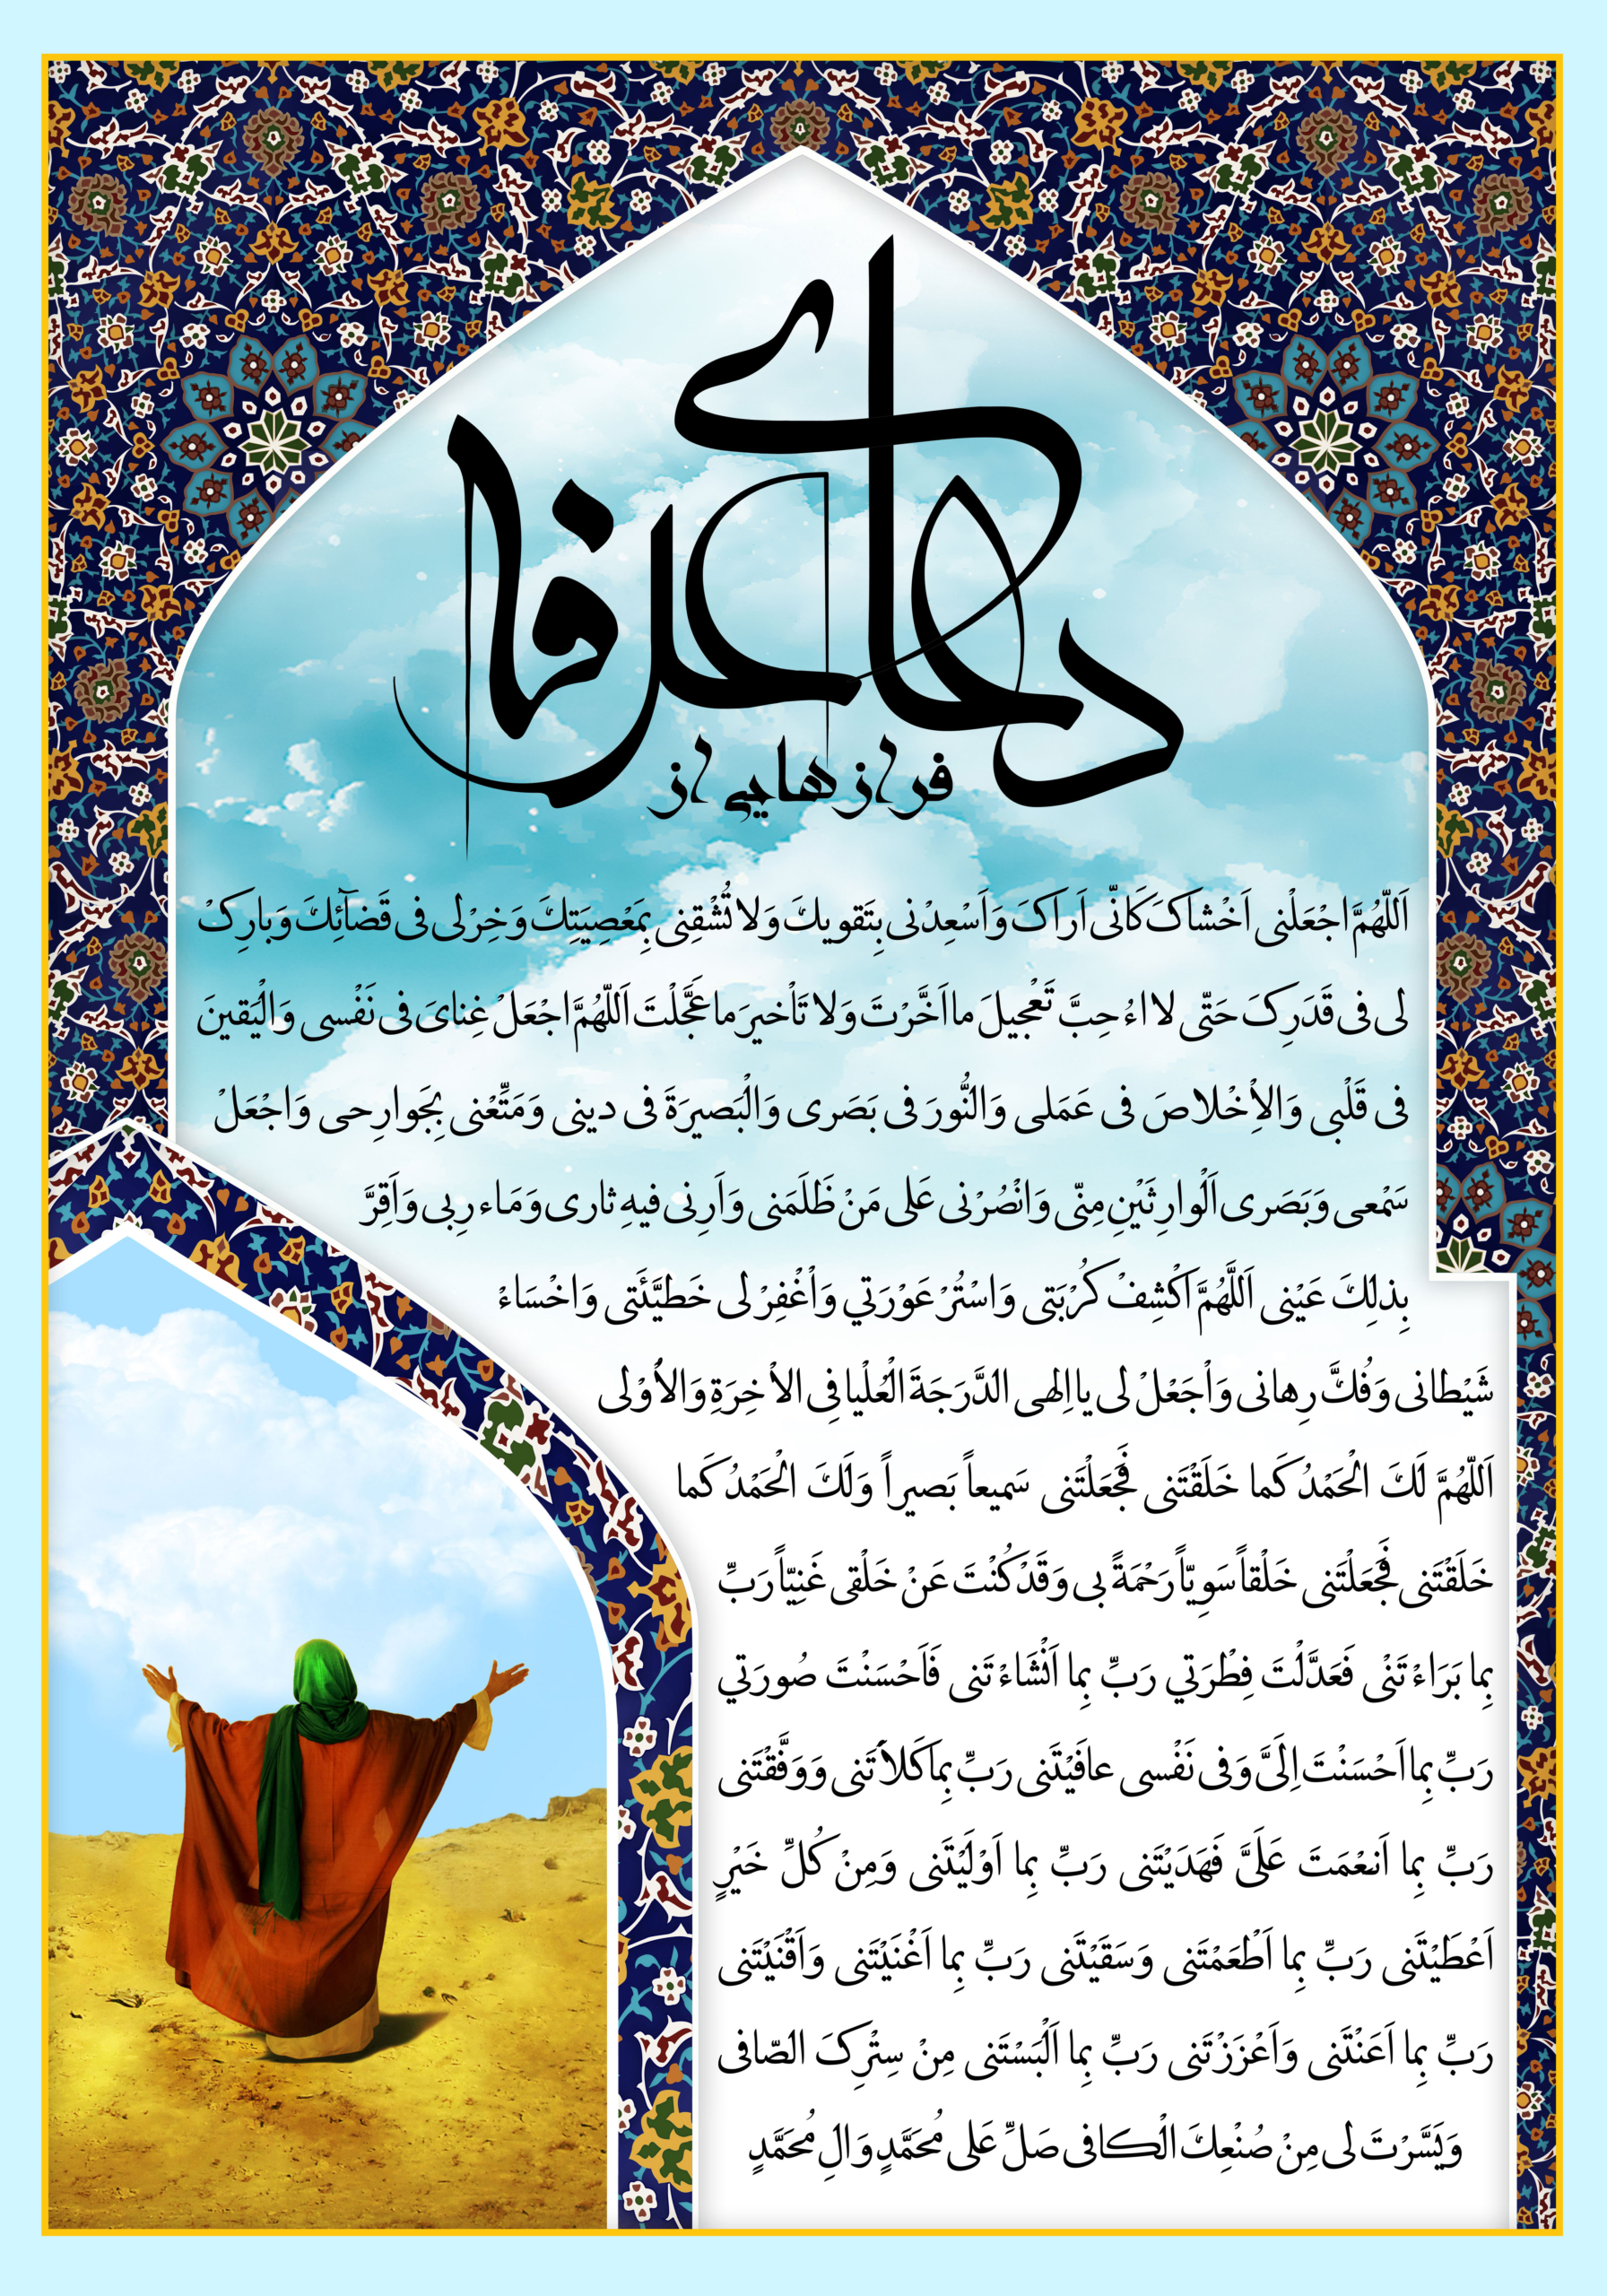 دعای عرفه
فرازهایی از
اَللّهُمَّ اجْعَلْنی اَخْشاکَ کَانّی اَراکَ وَاَسْعِدْنی بِتَقویکَ وَلا تُشْقِنی بِمَعْصِیَتِکَ وَخِرْلی فی قَضآئِکَ وَبارِکْ
لی فی قَدَرِکَ حَتّی لا اءُحِبَّ تَعْجیلَ ما اَخَّرْتَ وَلا تَاْخیرَ ما عَجَّلْتَ اَللّهُمَّ اجْعَلْ غِنایَ فی نَفْسی وَالْیَقینَ
فی قَلْبی وَالاِْخْلاصَ فی عَمَلی وَالنُّورَ فی بَصَری وَالْبَصیرَةَ فی دینی وَمَتِّعْنی بِجَوارِحی وَاجْعَلْ
سَمْعی وَبَصَری اَلْوارِثَیْنِ مِنّی وَانْصُرْنی عَلی مَنْ ظَلَمَنی وَاَرِنی فیهِ ثاری وَمَاء رِبی وَاَقِرَّ
بِذلِکَ عَیْنی اَللَّهُمَّ اکْشِفْ کُرْبَتی وَاسْتُرْ عَوْرَتی وَاْغْفِرْ لی خَطیَّئَتی وَاخْسَاءْ
شَیْطانی وَفُکَّ رِهانی وَاْجَعَلْ لی یا اِلهی الدَّرَجَةَ الْعُلْیا فِی الاْ خِرَةِ وَالاُْوْلی
اَللّهُمَّ لَکَ الْحَمْدُ کَما خَلَقْتَنی فَجَعَلْتَنی سَمیعاً بَصیراً وَلَکَ الْحَمْدُ کَما
خَلَقْتَنی فَجَعَلْتَنی خَلْقاً سَوِیّاً رَحْمَةً بی وَقَدْ کُنْتَ عَنْ خَلْقی غَنِیّاً رَبِّ
بِما بَرَاءْتَنْی فَعَدَّلْتَ فِطْرَتی رَبِّ بِما اَنْشَاءْتَنی فَاَحْسَنْتَ صُورَتی
رَبِّ بِما اَحْسَنْتَ اِلَیَّ وَفی نَفْسی عافَیْتَنی رَبِّ بِما کَلاَْتَنی وَوَفَّقْتَنی
رَبِّ بِما اَنعْمَتَ عَلَیَّ فَهَدَیْتَنی رَبِّ بِما اَوْلَیْتَنی وَمِنْ کُلِّ خَیْرٍ
اَعْطَیْتَنی رَبِّ بِما اَطْعَمْتَنی وَسَقَیْتَنی رَبِّ بِما اَغْنَیْتَنی وَاَقْنَیْتَنی
رَبِّ بِما اَعَنْتَنی وَاَعْزَزْتَنی رَبِّ بِما اَلْبَسْتَنی مِنْ سِتْرِکَ الصّافی
وَیَسَّرْتَ لی مِنْ صُنْعِکَ الْکافی صَلِّ عَلی مُحَمَّدٍ وَالِ مُحَمَّدٍ